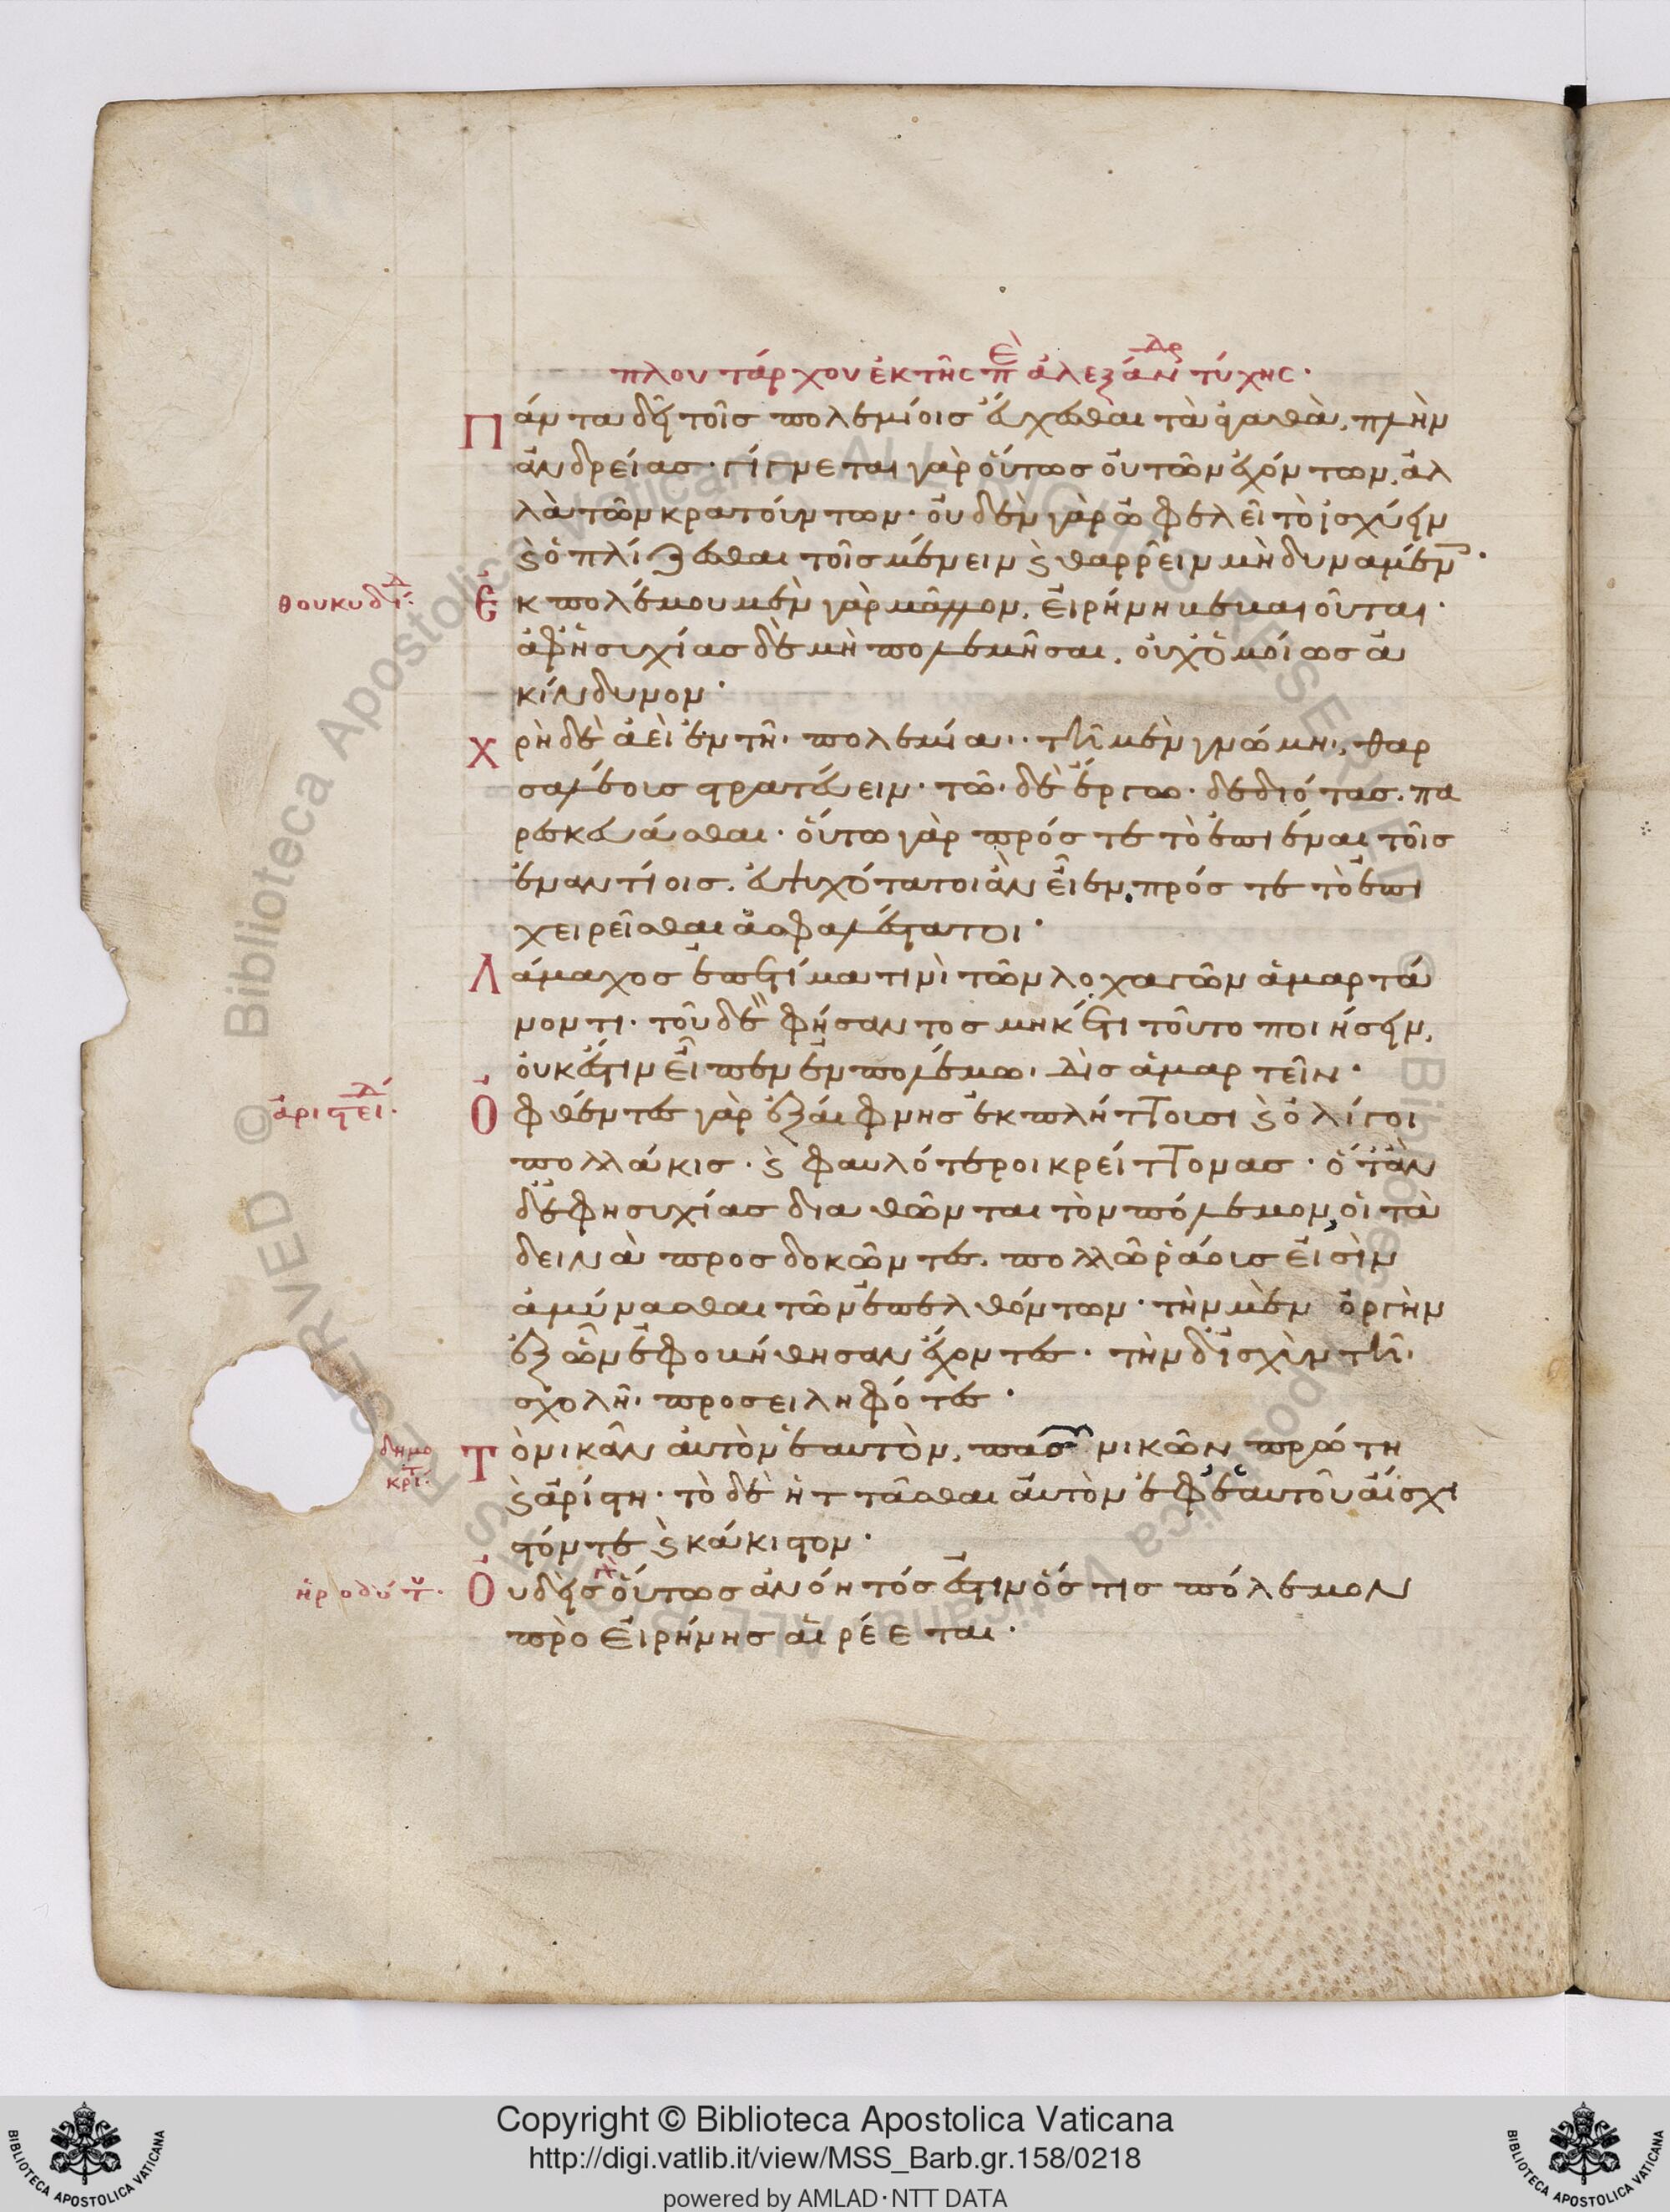 πλουτάρχου ἐκ τῆς π ἀλεξάν τύχης·
Πάντα δεῖ τοῖς πολεμίοις εὔχεσθαι τἀγαθὰ, πλὴν
ἀνδρείας· γίγνεται γὰρ οὕτως οὐ τῶν ἐχόντων, ἀλ
λὰ τῶν κρατούντων· οὐδὲν γὰρ ὠφελεῖ τὸ ἰσχύειν
ϗ ὁπλίζεσθαι τοῖς μένειν ϗ θαρρεῖν μὴ δυναμέν·
θουκυδί: Ἐκ πολέμου μὲν γὰρ μᾶλλον, εἰρήνη βεβαιοῦται·
ἀφ' ἡσυχίας δὲ μὴ πολεμῆσαι, οὐχ ὁμοίως ἀ
κίνδυνον·
Χρὴ δὲ ἀεὶ ἐν τῇ πολεμία· τῇ μὲν γνώμη, θαρ
σαλέους στρατεύειν· τῶ δὲ ἔργω· δεδιότας, πα
ρεσκευάσθαι· οὕτω γὰρ πρός τε τὸ ἐπιέναι τοῖς
ἐναντίοις. εὐψυχότατοι ἂν εἶεν, πρός τε τὸ ἐπι
χειρεῖσθαι ἀσφαλέστατοι·
Λάμαχος ἐπετίμα τινὶ τῶν λοχαγῶν ἁμαρτά
νοντι· τοῦ δὲ φήσαντος μηκέτι τοῦτο ποιήσειν,
οὐκ ἔστιν εἶπεν ἐν πολέμω, δὶς ἁμαρτεῖν·
ἀριστεί· Ὀφθέντες γὰρ ἐξαίφνης ἐκπλήττουσι ϗ ὀλίγοι
πολλάκις· ϗ φαυλότεροι κρείττονας· ὅταν
δ' ἐφ' ἡσυχίας διαθῶνται τὸν πόλεμον, οἱ τὰ
δεινὰ προσδοκῶντες. πολλῶ ῥάους εἰσὶν
ἀμύνασθαι τῶν ἐπελθόντων· τὴν μὲν ὀργὴν
ἐξ ὧν ἐφοβήθησαν ἔχοντες· τὴν δ' ἰσχὺν τῇ
σχολῇ προσειληφότες·
δημο κρτ· Τὸ νικᾶν αὐτὸν ἑαυτὸν, πασῶν νικῶν πρώτη
ϗ ἀρίστη· τὸ δὲ ἡττᾶσθαι αὐτὸν ἐφ' ἑαυτοῦ αἴσχι
στόν τε ϗ κάκιστον·
ἡροδότ· Οὐδεὶς οὕτως ἀνόητός ἐστιν ὅστις πόλεμον
πρὸ εἰρήνης αἱρέεται·
© Biblioteca Apostolica Vaticana ALL RIGHTS RESERVED
Copyright © Biblioteca Apostolica Vaticana
http://digi.vatlib.it/view/MSS_Barb.gr.158/0218
powered by AMLAD·NTT DATA
BIBLIOTECA APOSTOLICA VATICANA
BIBLIOTECA APOSTOLICA VATICANA